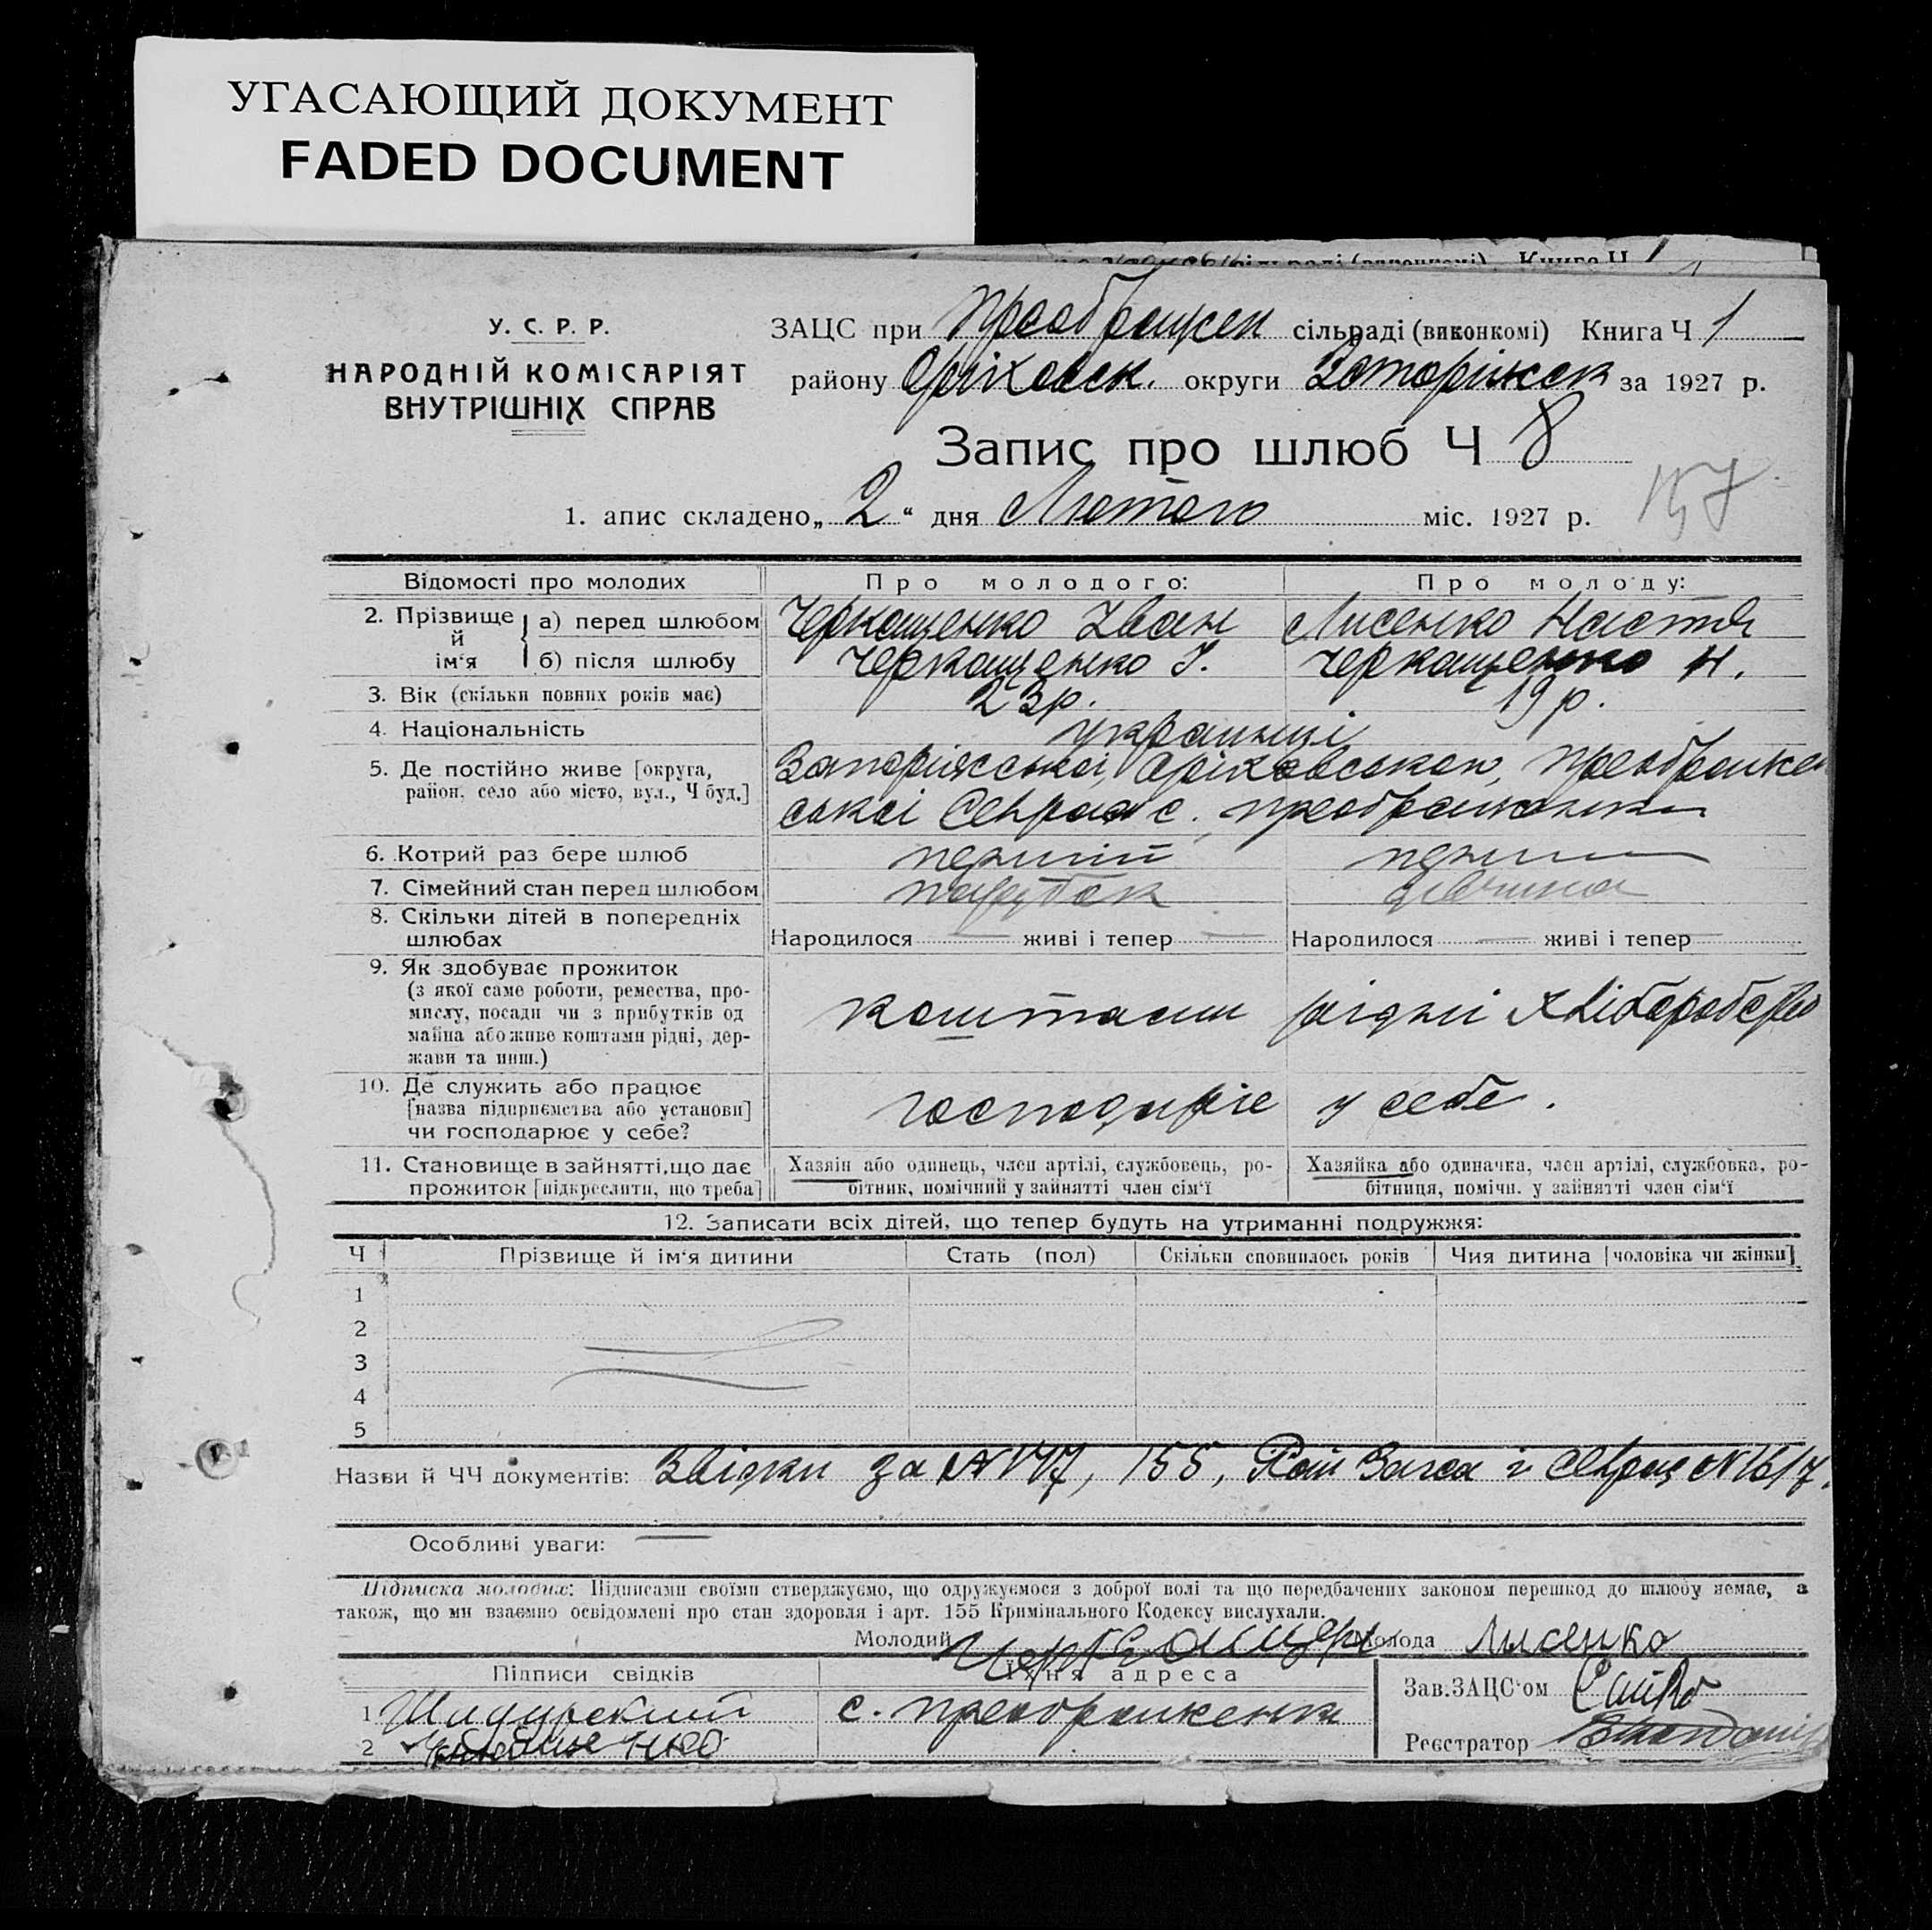 УГАСАЮЩИЙ ДОКУМЕНТ
FADED DOCUMENT
У. С. Р. Р.
НАРОДНІЙ КОМІСАРІЯТ
ВНУТРІШНІХ СПРАВ
ЗАЦС при Преображен сільраді (виконкомі) Книга Ч 1
району Оріховск. округи Запоріжск за 1927 р.
Запис про шлюб Ч 8
157
1. апис складено „2“ дня Лютого міс. 1927 р.
Відомості про молодих Про молодого: Про молоду:
2. Прізвище й ім‘я а) перед шлюбом Черкащенко Іван Лисенко Настя
б) після шлюбу Черкащенко І. Черкащенко Н.
3. Вік (скільки повних років має) 23 р. 19 р.
4. Національність українці
5. Де постійно живе [округа, Запоріжської, Оріховського, Преображен
район, село або місто, вул., Ч буд.] ської Сельради с. Преображенки
6. Котрий раз бере шлюб перший перший
7. Сімейний стан перед шлюбом парубок дівчина
8. Скільки дітей в попередніх
шлюбах Народилося — живі і тепер — Народилося — живі і тепер —
9. Як здобуває прожиток
(з якої саме роботи, ремества, про-
мислу, посади чи з прибутків од коштами рідні хліборобство
майна або живе коштами рідні, дер-
жави та инш.)
10. Де служить або працює
[назва підприємства або установи] господарює у себе.
чи господарює у себе?
11. Становище в зайнятті, що дає Хазяін або одинець, член артілі, службовець, ро- Хазяйка або одиначка, член артілі, службовка, ро-
прожиток [підкреслити, що треба] бітник, помічний у зайнятті член сім‘ї бітниця, помічн. у зайнятті член сім‘ї
12. Записати всіх дітей, що тепер будуть на утриманні подружжя:
Ч Прізвище й ім‘я дитини Стать (пол) Скільки сповнилось років Чия дитина [чоловіка чи жінки]
1
2
3
4
5
Назви й ЧЧ документів: Звідки за № 147, 155, Рай Загса і Сельрад № 16/7.
Особливі уваги: —
Підписка молодих: Підписами своїми стверджуємо, що одружуємося з доброї волі та що передбачених законом перешкод до шлюбу немає, а
також, що ми взаємно освідомлені про стан здоровля і арт. 155 Кримінального Кодексу вислухали.
Молодий Черкащен Молода Лисенко
Підписи свідків Їхня адреса
Зав. ЗАЦС‘ом
1 с. Преображенки
2
Реєстратор